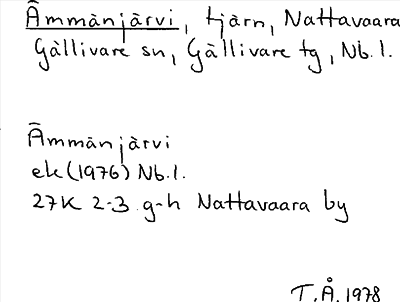 Ämmänjärvi, tjärn, Nattavaara
Gällivare sn, Gällivare tg, Nb.l.
Ämmänjärvi
ek (1976) Nb.l.
27K 2-3 g-h Nattavaara by
T.Å. 1978